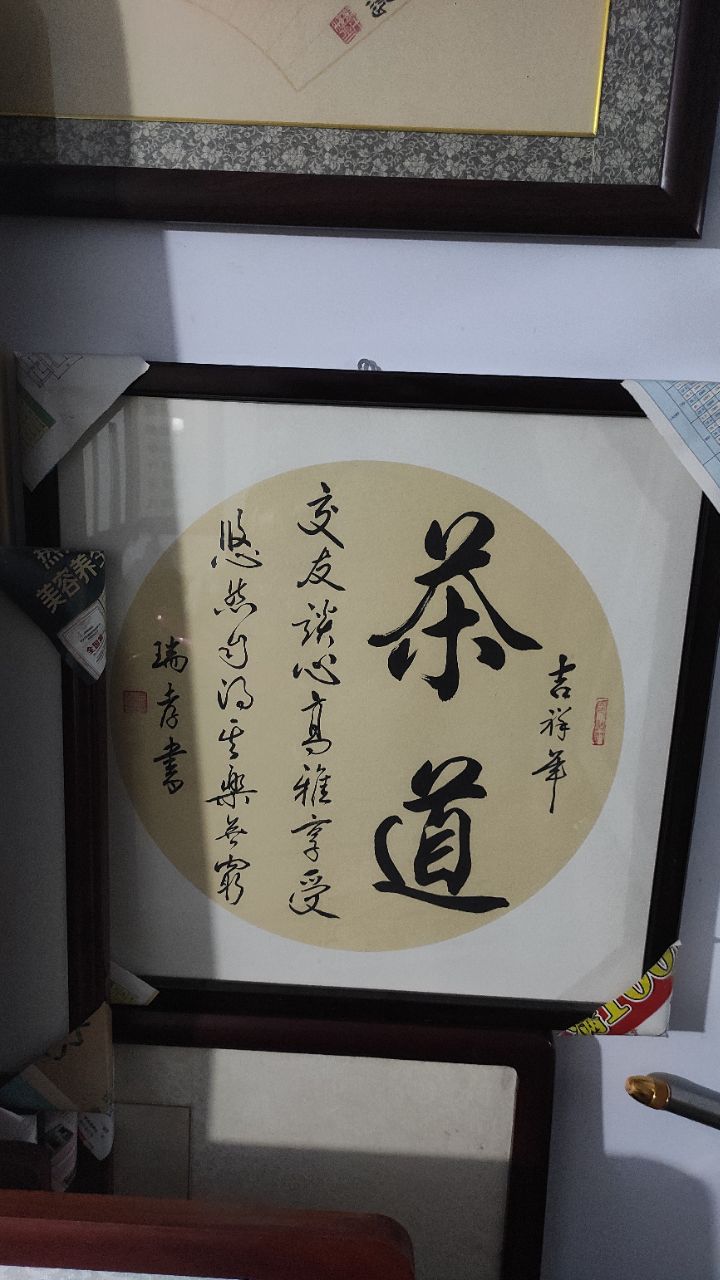 吉祥年
茶道
交友談心高雅享受
悠然自得其樂無窮
瑞孝書
美容养
100